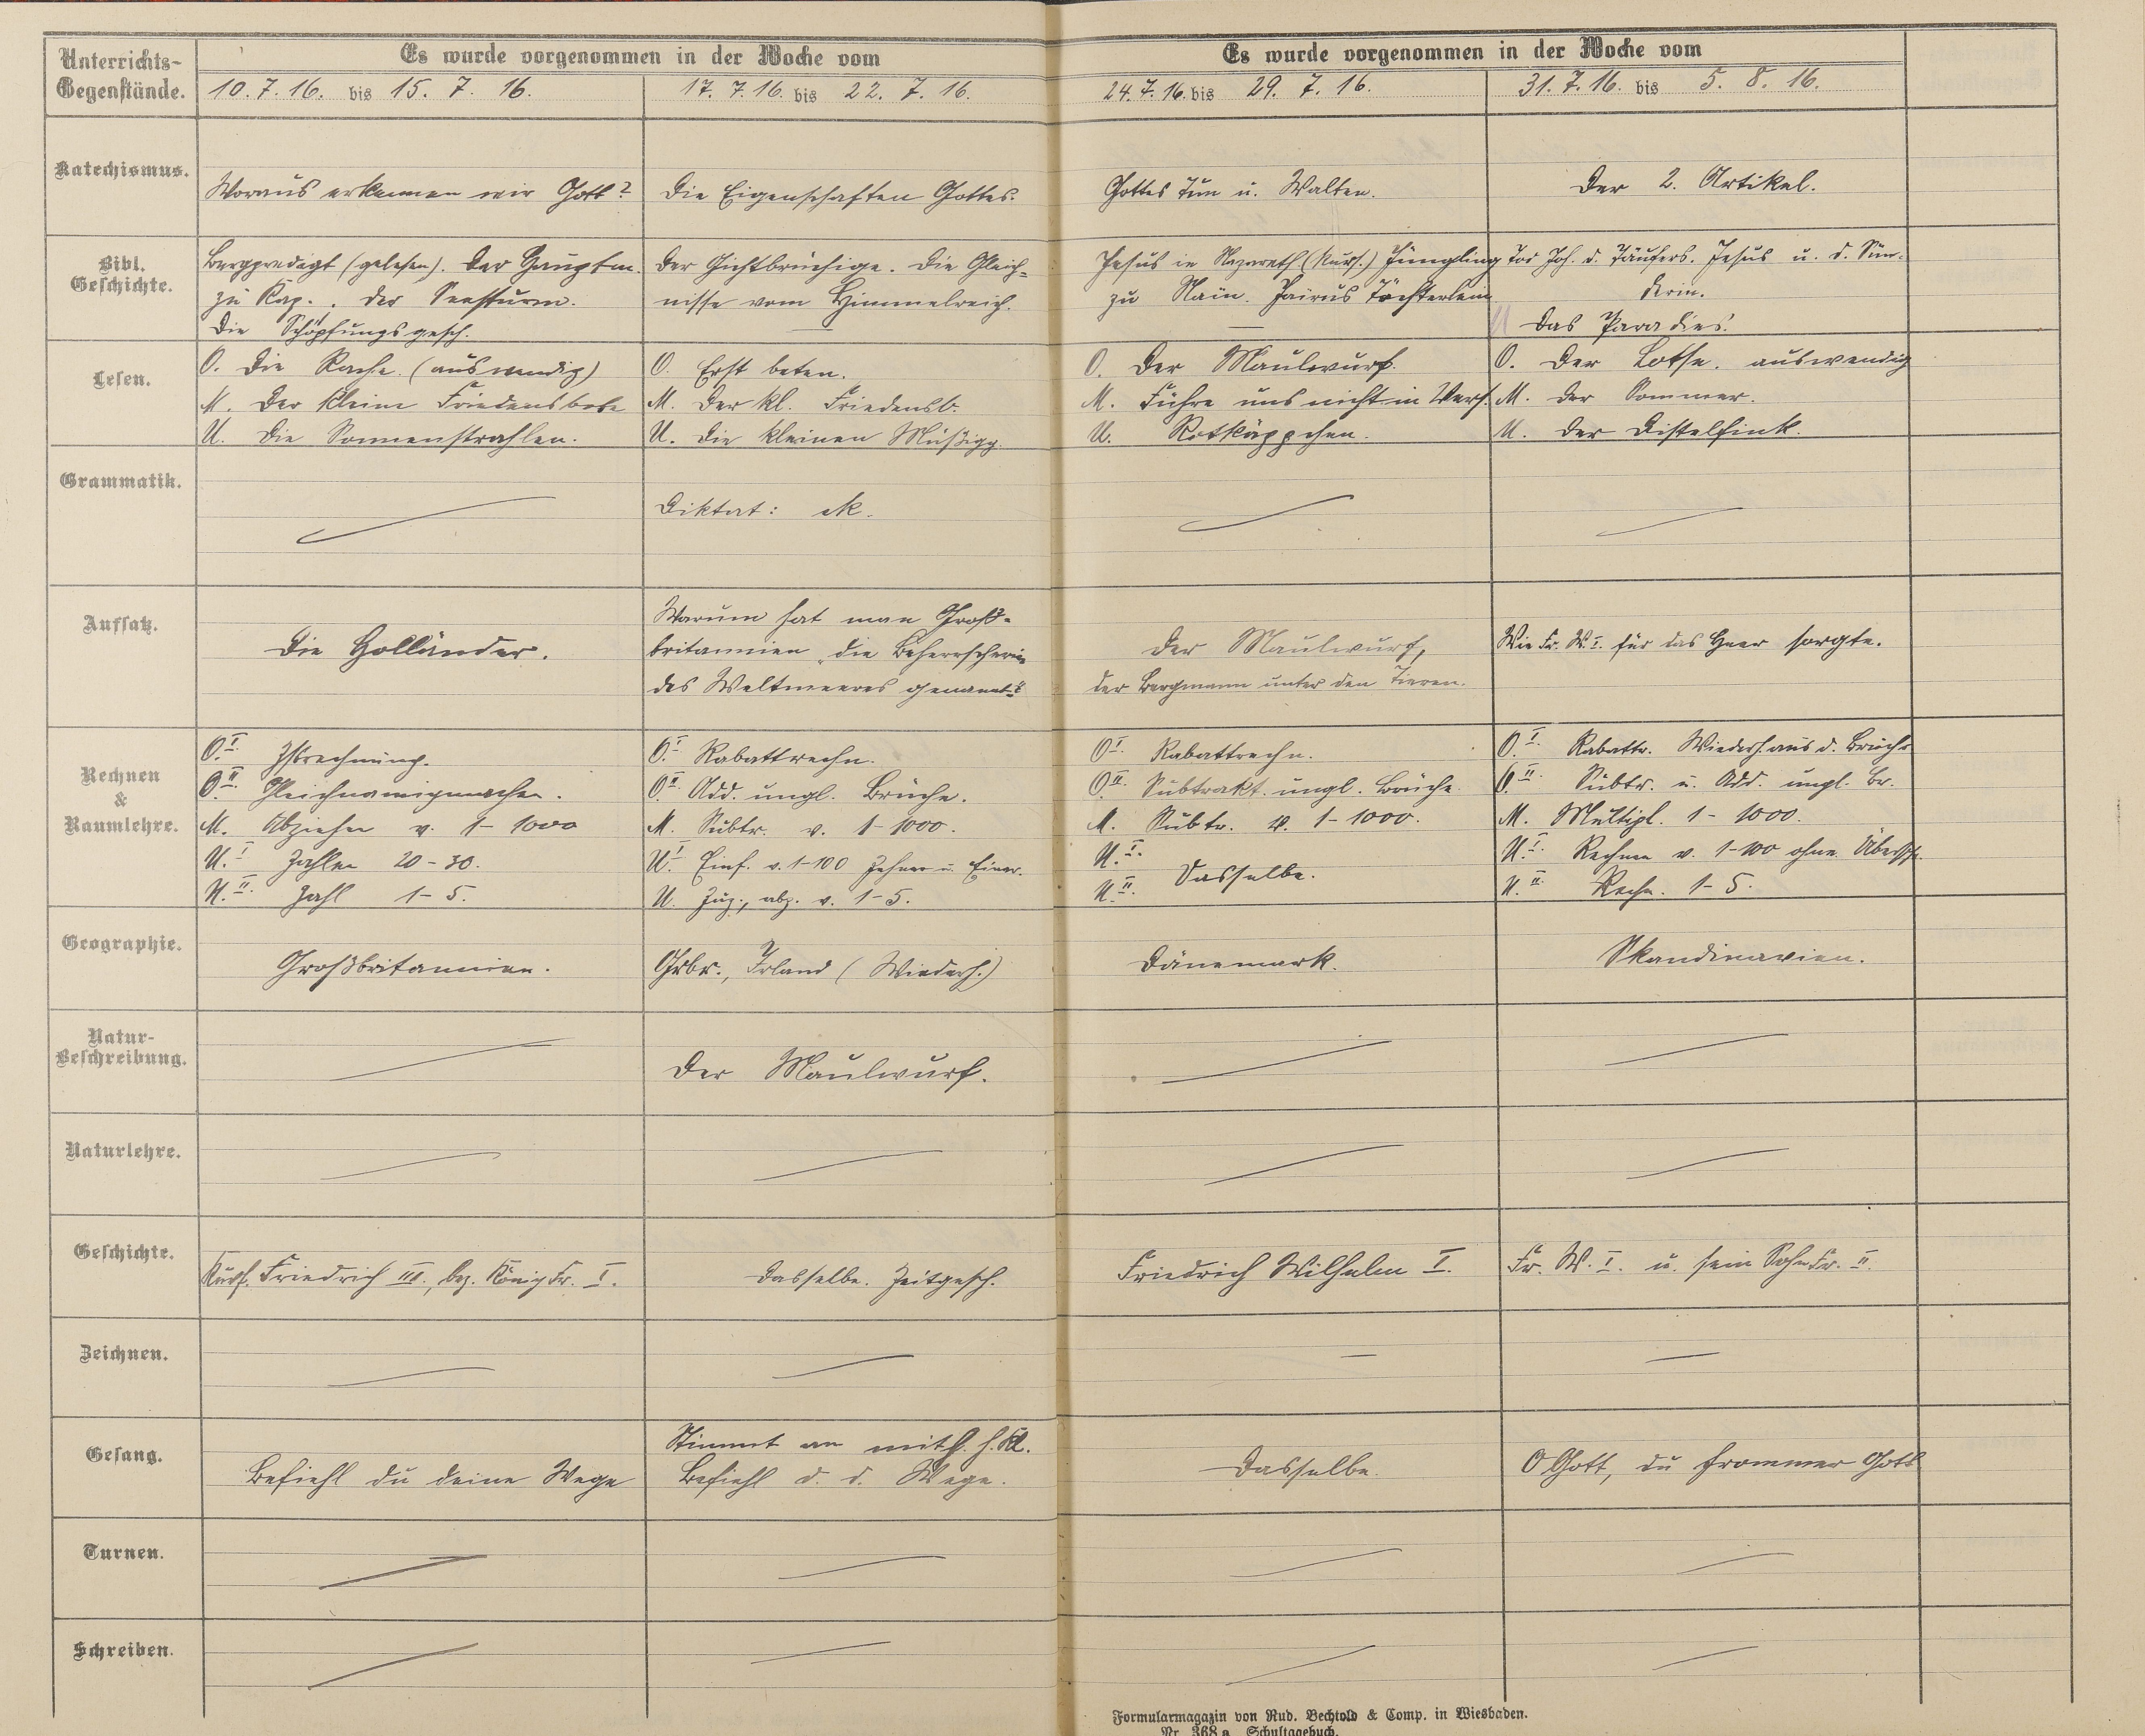 Unterrichts-
Gegenstände.
Es wurde vorgenommen in der Woche vom
Es wurde vorgenommen in der Woche vom
10. 7. 16. bis 15. 7. 16.
17. 7. 16. bis 22. 7. 16.
24. 7. 16. bis 29. 7. 16.
31. 7. 16. bis 5. 8. 16.
Katechismus.
Woraus erkennen wir Gott?
Die Eigenschaften Gottes.
Gottes Tun u. Walten.
Der 2. Artikel.
Bibl.
Geschichte.
Bergpredigt (gelesen). Der Hauptm.
zu Kap. . Der Seesturm.
Die Schöpfungsgesch.
Der Gichtbrüchige. Die Gleich-
nisse vom Himmelreich.
Jesus in Nazareth (kurs.) Jüngling
zu Nain. Jairus Töchterlein
Tod Joh. d. Täufers. Jesus u. d. Sün-
derin.
U Das Paradies.
Lesen.
O. Die Rache. (auswendig)
M. Der kleine Friedensbote
U. Die Sonnenstrahlen.
O. Erst beten.
M. Der kl. Friedensb.
U. Die kleinen Müßigg.
O. Der Maulwurf.
M. Führe uns nicht in Vers.
U. Rotkäppchen.
O. Der Lotse. auswendig
M. Der Sommer.
U. Der Distelfink.
Grammatik.
Diktat: ck.
Aufsatz.
Die Holländer.
Warum hat man Groß-
britannien „die Beherrscherin
des Weltmeeres genannt“?
Der Maulwurf,
der Bergmann unter den Tieren.
Wie Fr. W. I. für das Heer sorgte.
Rechnen
&
Raumlehre.
O. I. Zsrechnung.
O. II. Gleichnamigmachen.
M. Abziehen v. 1–1000
U. I. Zahlen 20–30.
U. II. Zahl 1–5.
O. I. Rabattrechn.
O. II. Add. ungl. Brüche.
M. Subtr. v. 1–1000.
U. I. Einf. v. 1–100 Zehner u. Einer.
U. Zuz., abz. v. 1–5.
O. I. Rabattrechn.
O. II. Subtrakt. ungl. Brüche.
M. Subtr. v. 1–1000.
U. I.
U. II. Dasselbe.
O. I. Rabattr. Wiederh. aus d. Bruchr
O. II. Subtr. u. Add. ungl. Br.
M. Multipl. 1–1000.
U. I. Rechnen v. 1–100 ohne Übersch.
U. II. Rechn. 1–5.
Geographie.
Großbritannien.
Grbr., Irland (Wiederh.)
Dänemark.
Skandinavien.
Natur-
Beschreibung.
Der Maulwurf.
Naturlehre.
Geschichte.
Kurf. Friedrich III., bez. König Fr. I.
Dasselbe. Zeitgesch.
Friedrich Wilhelm I.
Fr. W. I. u. sein Sohn Fr. II.
Zeichnen.
Gesang.
Befiehl du deine Wege
Stimmt an mit h. h. Kl.
Befiehl d. d. Wege.
Dasselbe.
O Gott, du frommer Gott
Turnen.
Schreiben.
Formularmagazin von Rud. Bechtold & Comp. in Wiesbaden.
Nr. 368 a. Schultagebuch.